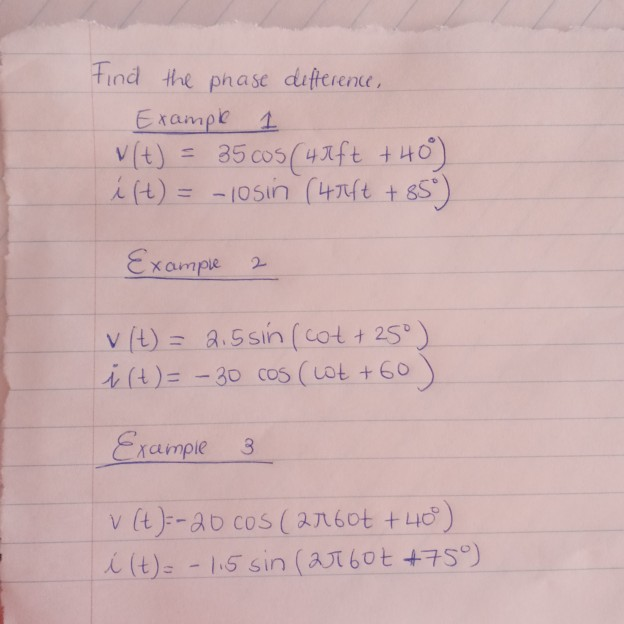 Find the phase difference.
Example 1
v(t) = 35cos(4πft + 40°)
i(t) = -10sin (4πft + 85°)
Example 2
v(t) = 2.5sin(ωt + 25°)
i(t) = -30 cos(ωt + 60)
Example 3
v(t)=-20 cos(2π60t + 40°)
i(t)= -1.5 sin(2π60t +75°)